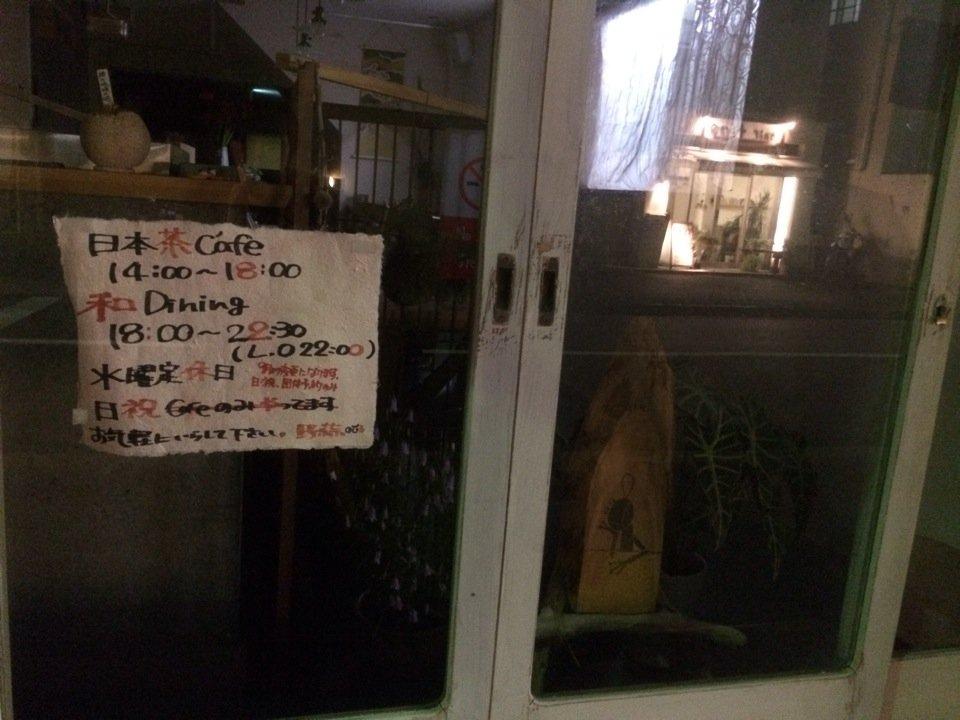 日本茶 Cafe
14:00～18:00
和 Dining
18:00～22:30
(L.O 22:00)
水曜定休日
日祝 Cafeのみやってます
お気軽にいらして下さい。